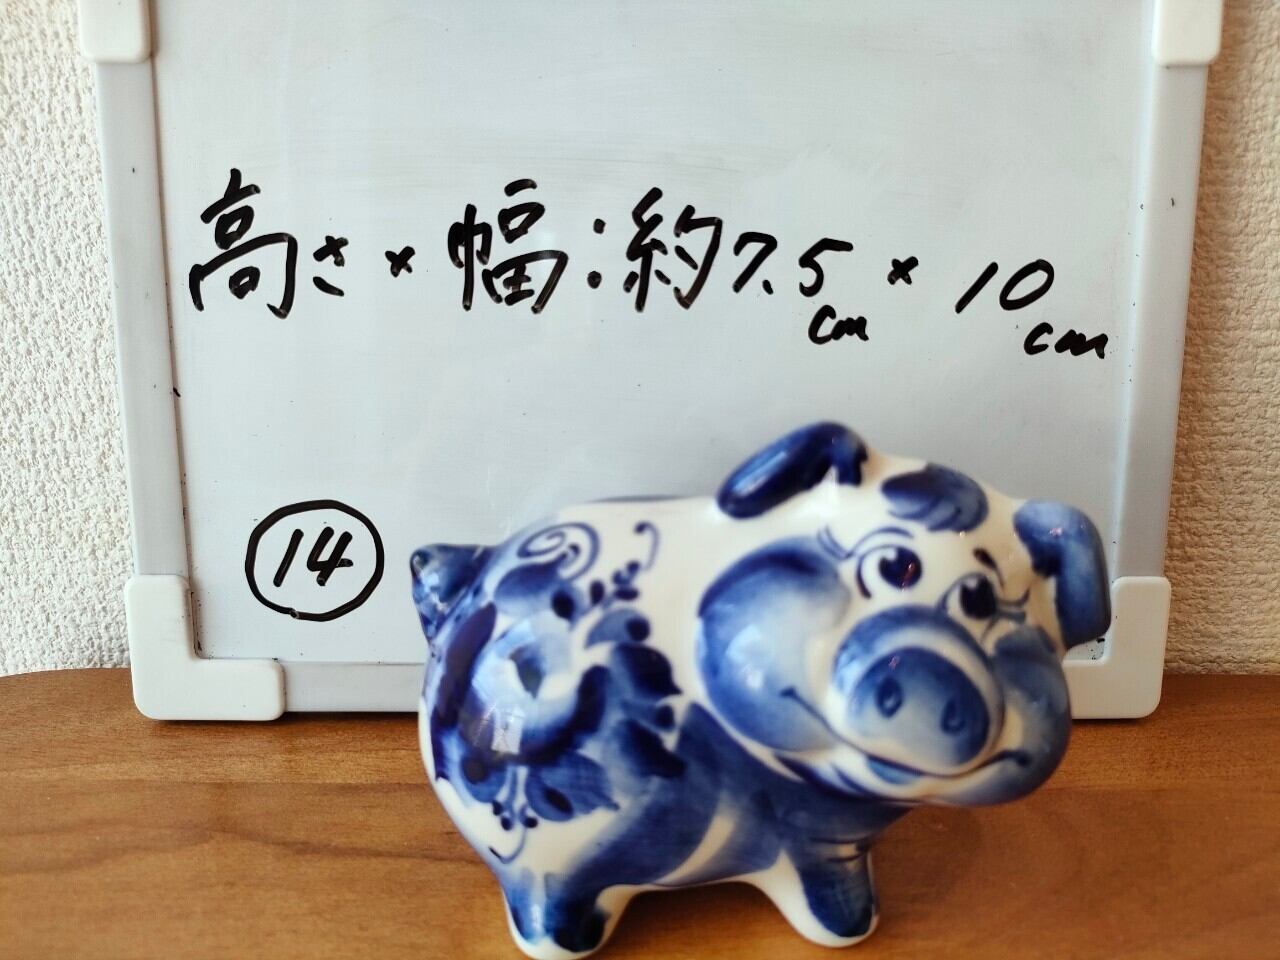 高さ×幅:約7.5cm×10cm
⑭